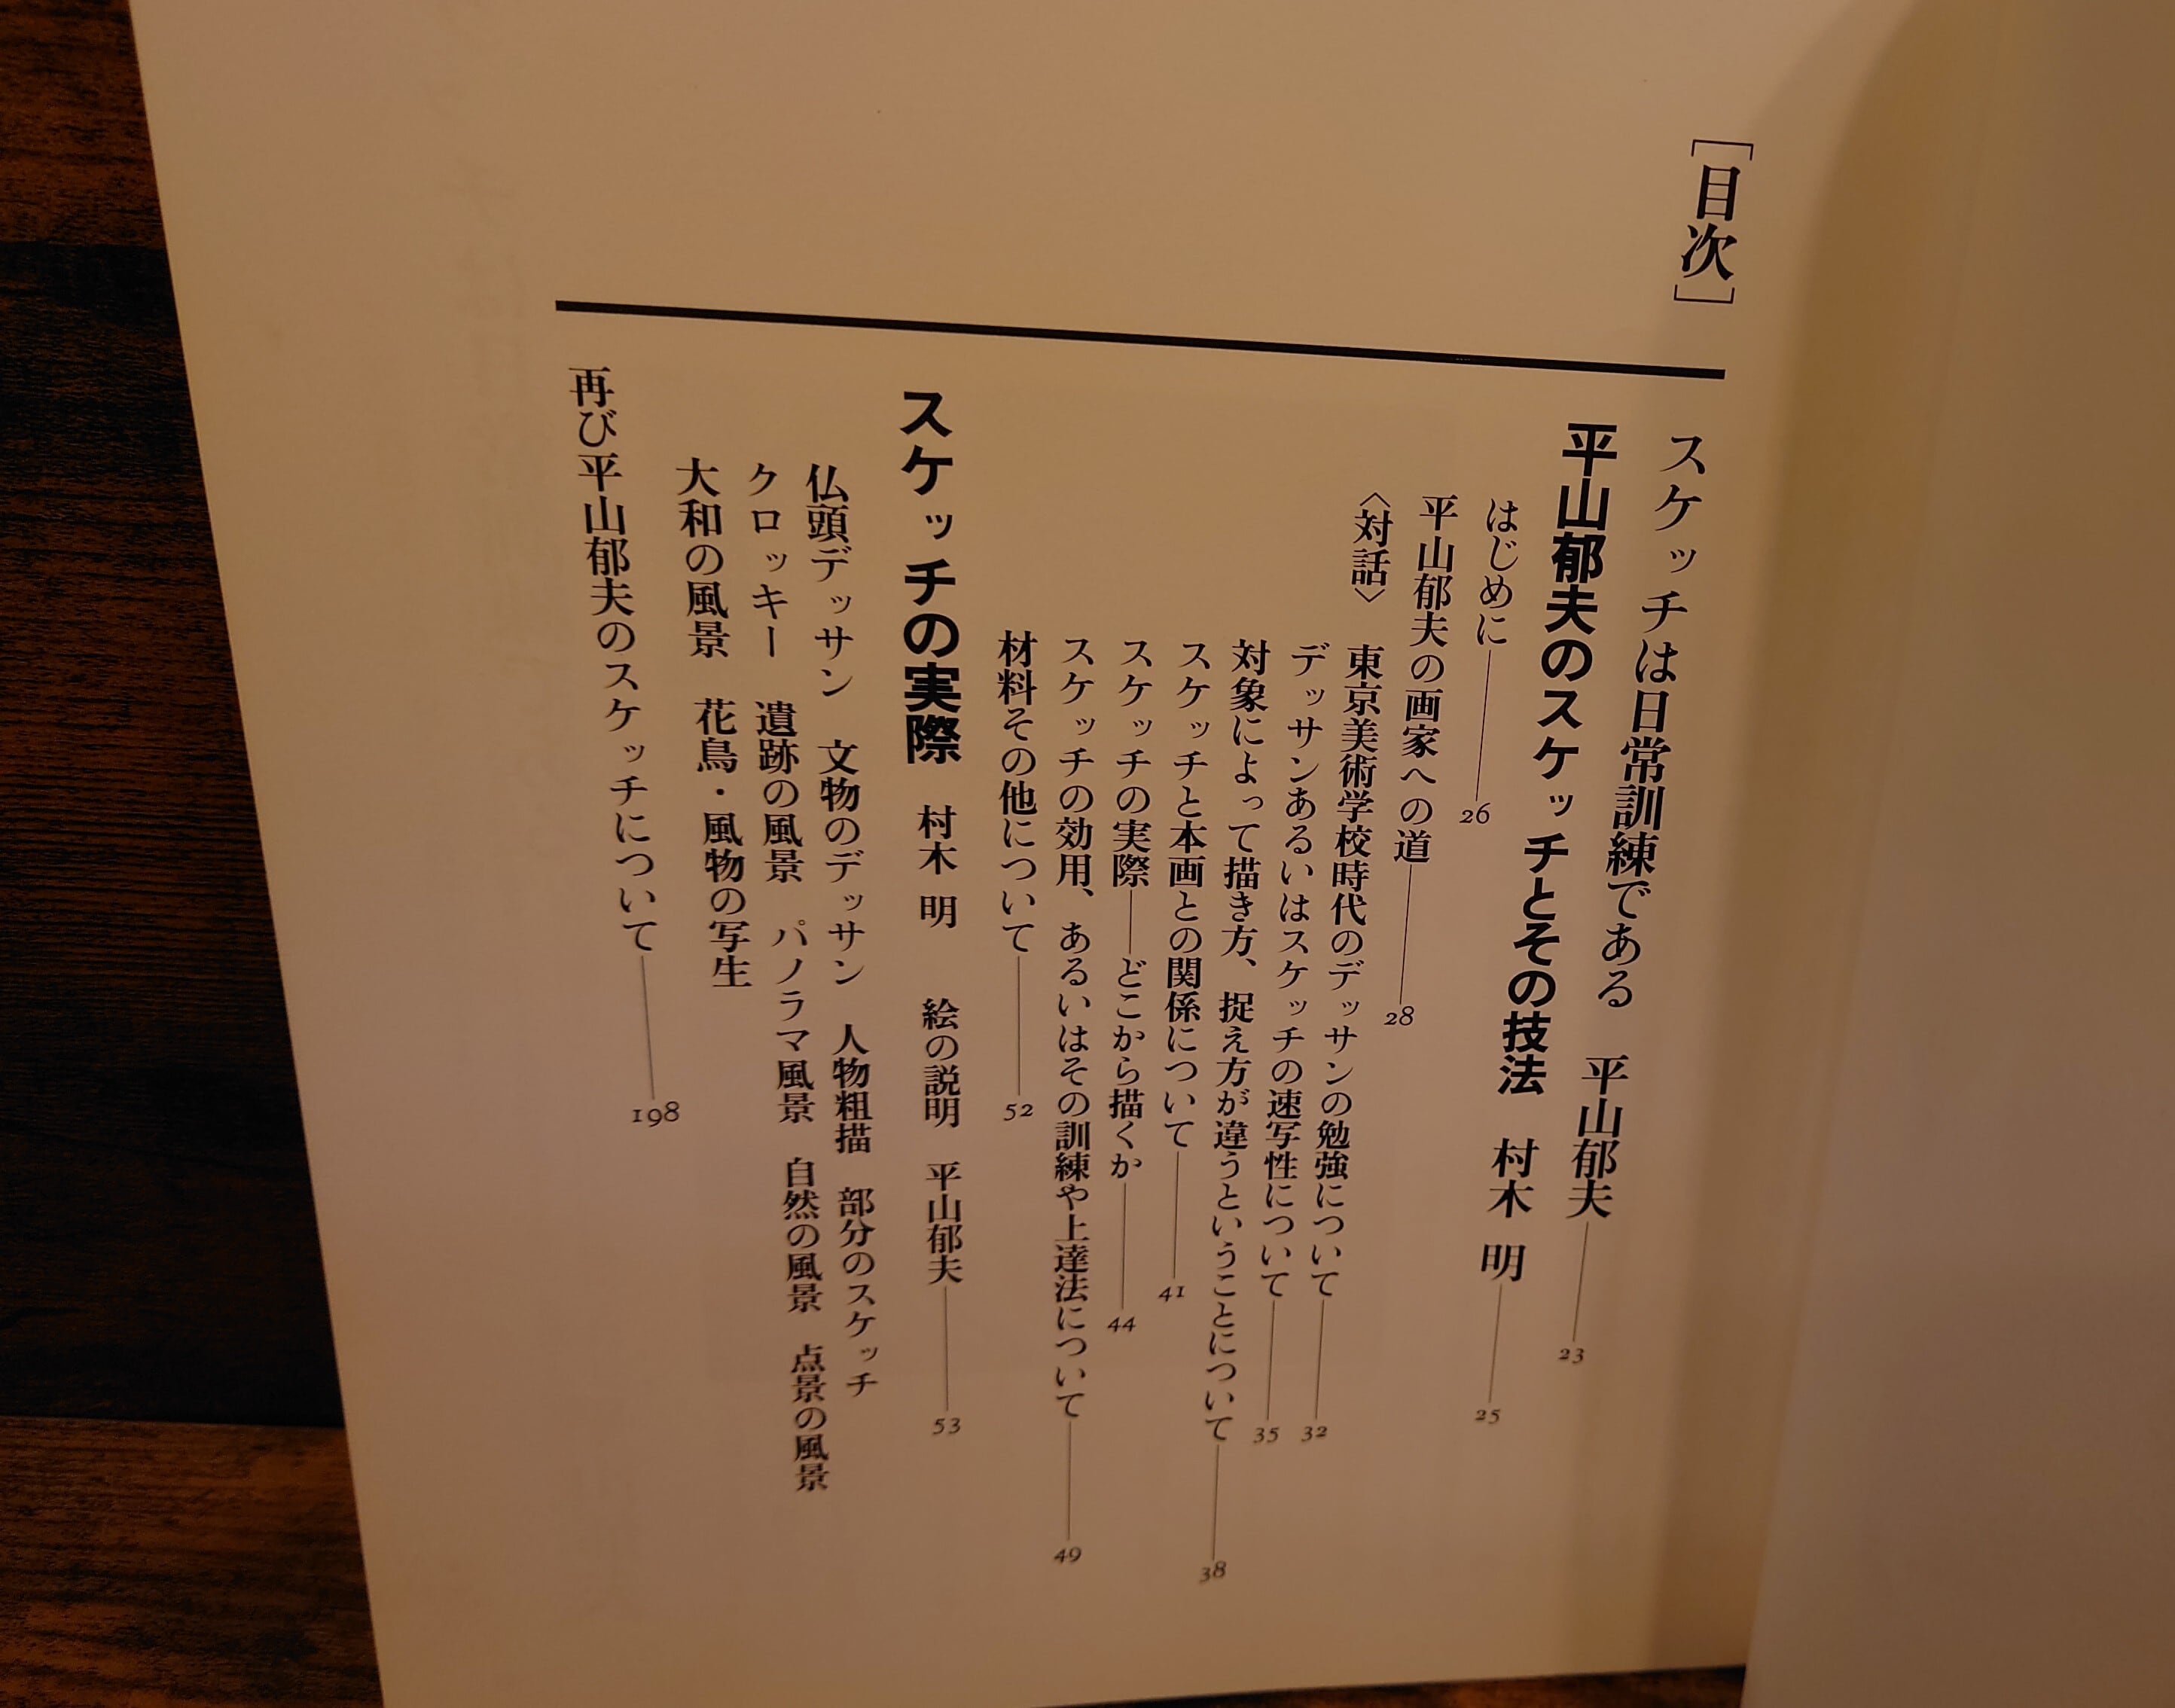 [目次]
スケッチは日常訓練である 平山郁夫 23
平山郁夫のスケッチとその技法 村木 明 25
はじめに 26
平山郁夫の画家への道 28
〈対話〉 東京美術学校時代のデッサンの勉強について 32
デッサンあるいはスケッチの速写性について 35
対象によって描き方、捉え方が違うということについて 38
スケッチと本画との関係について 41
スケッチの実際——どこから描くか 44
スケッチの効用、あるいはその訓練や上達法について 49
材料その他について 52
スケッチの実際 村木 明 絵の説明 平山郁夫 53
仏頭デッサン 文物のデッサン 人物粗描 部分のスケッチ
クロッキー 遺跡の風景 パノラマ風景 自然の風景 点景の風景
大和の風景 花鳥・風物の写生
再び平山郁夫のスケッチについて 198